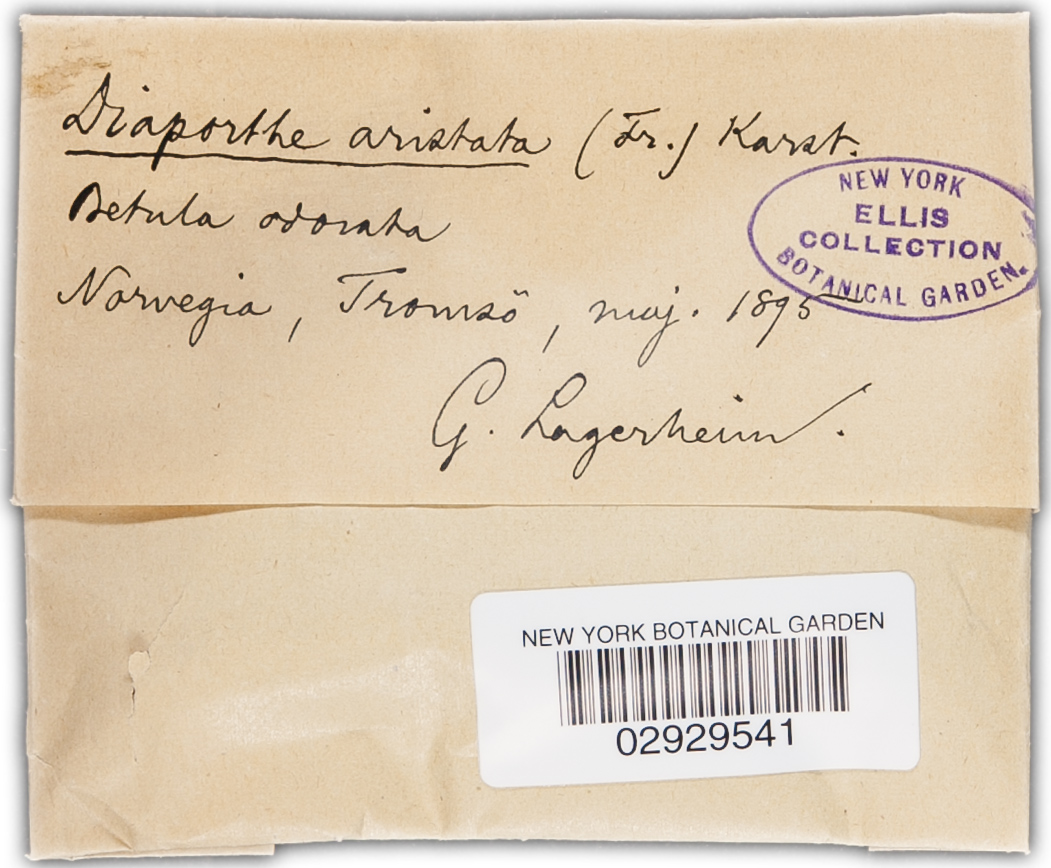 Diaporthe aristata (Fr.) Karst.
Betula odorata
Norvegia, Tromsö, maj. 1895
G. Lagerheim.
NEW YORK
ELLIS
COLLECTION
BOTANICAL GARDEN.
NEW YORK BOTANICAL GARDEN
02929541